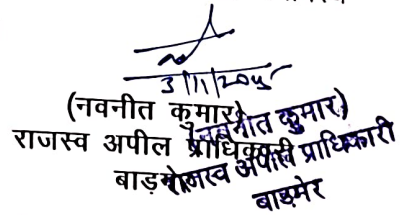 3/11/2025
(नवनीत कुमार)
राजस्व अपील प्राधिकारी
बाड़मेर
(नवनीत कुमार)
राजस्व अपील प्राधिकारी
बाडमेर